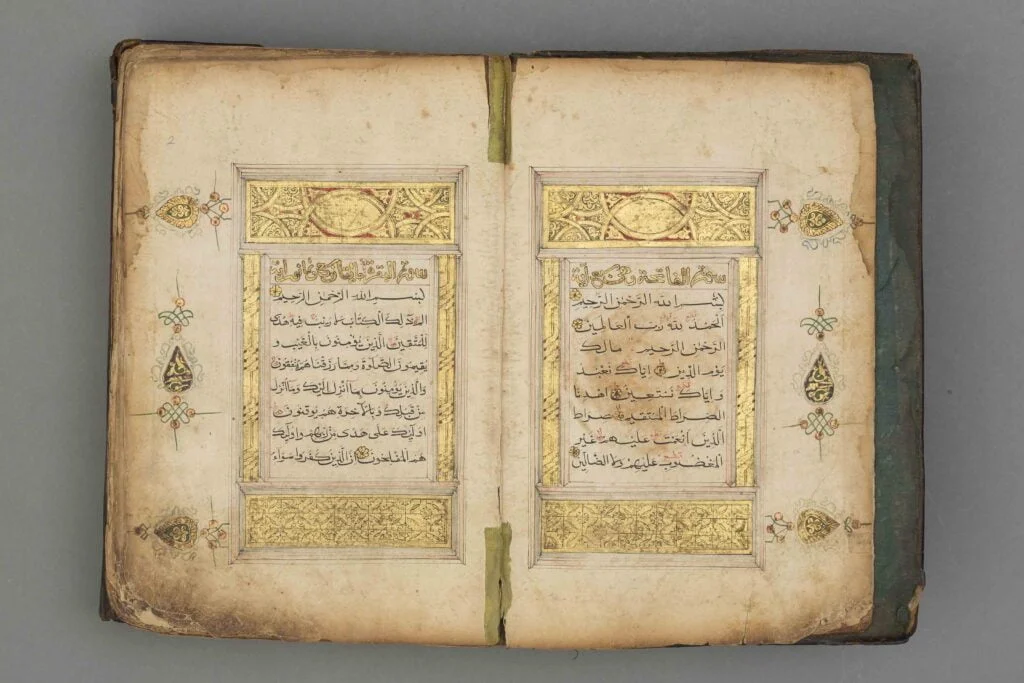 سورة الفاتحة سبع اية
بسم الله الرحمن الرحيم
الحمد لله رب العالمين
الرحمن الرحيم مالك
يوم الدين اياك نعبد
واياك نستعين اهدنا
الصراط المستقيم صراط
الذين انعمت عليهم غير
المغضوب عليهم ولا الضالين
2
سورة البقرة اية
بسم الله الرحمن الرحيم
الم ذلك الكتاب لا ريب فيه هدى
للمتقين الذين يؤمنون بالغيب و
يقيمون الصلوة ومما رزقناهم ينفقون
والذين يؤمنون بما انزل اليك وما انزل
من قبلك وبالاخرة هم يوقنون
اولئك على هدى من ربهم واولئك
هم المفلحون ان الذين كفروا سواء